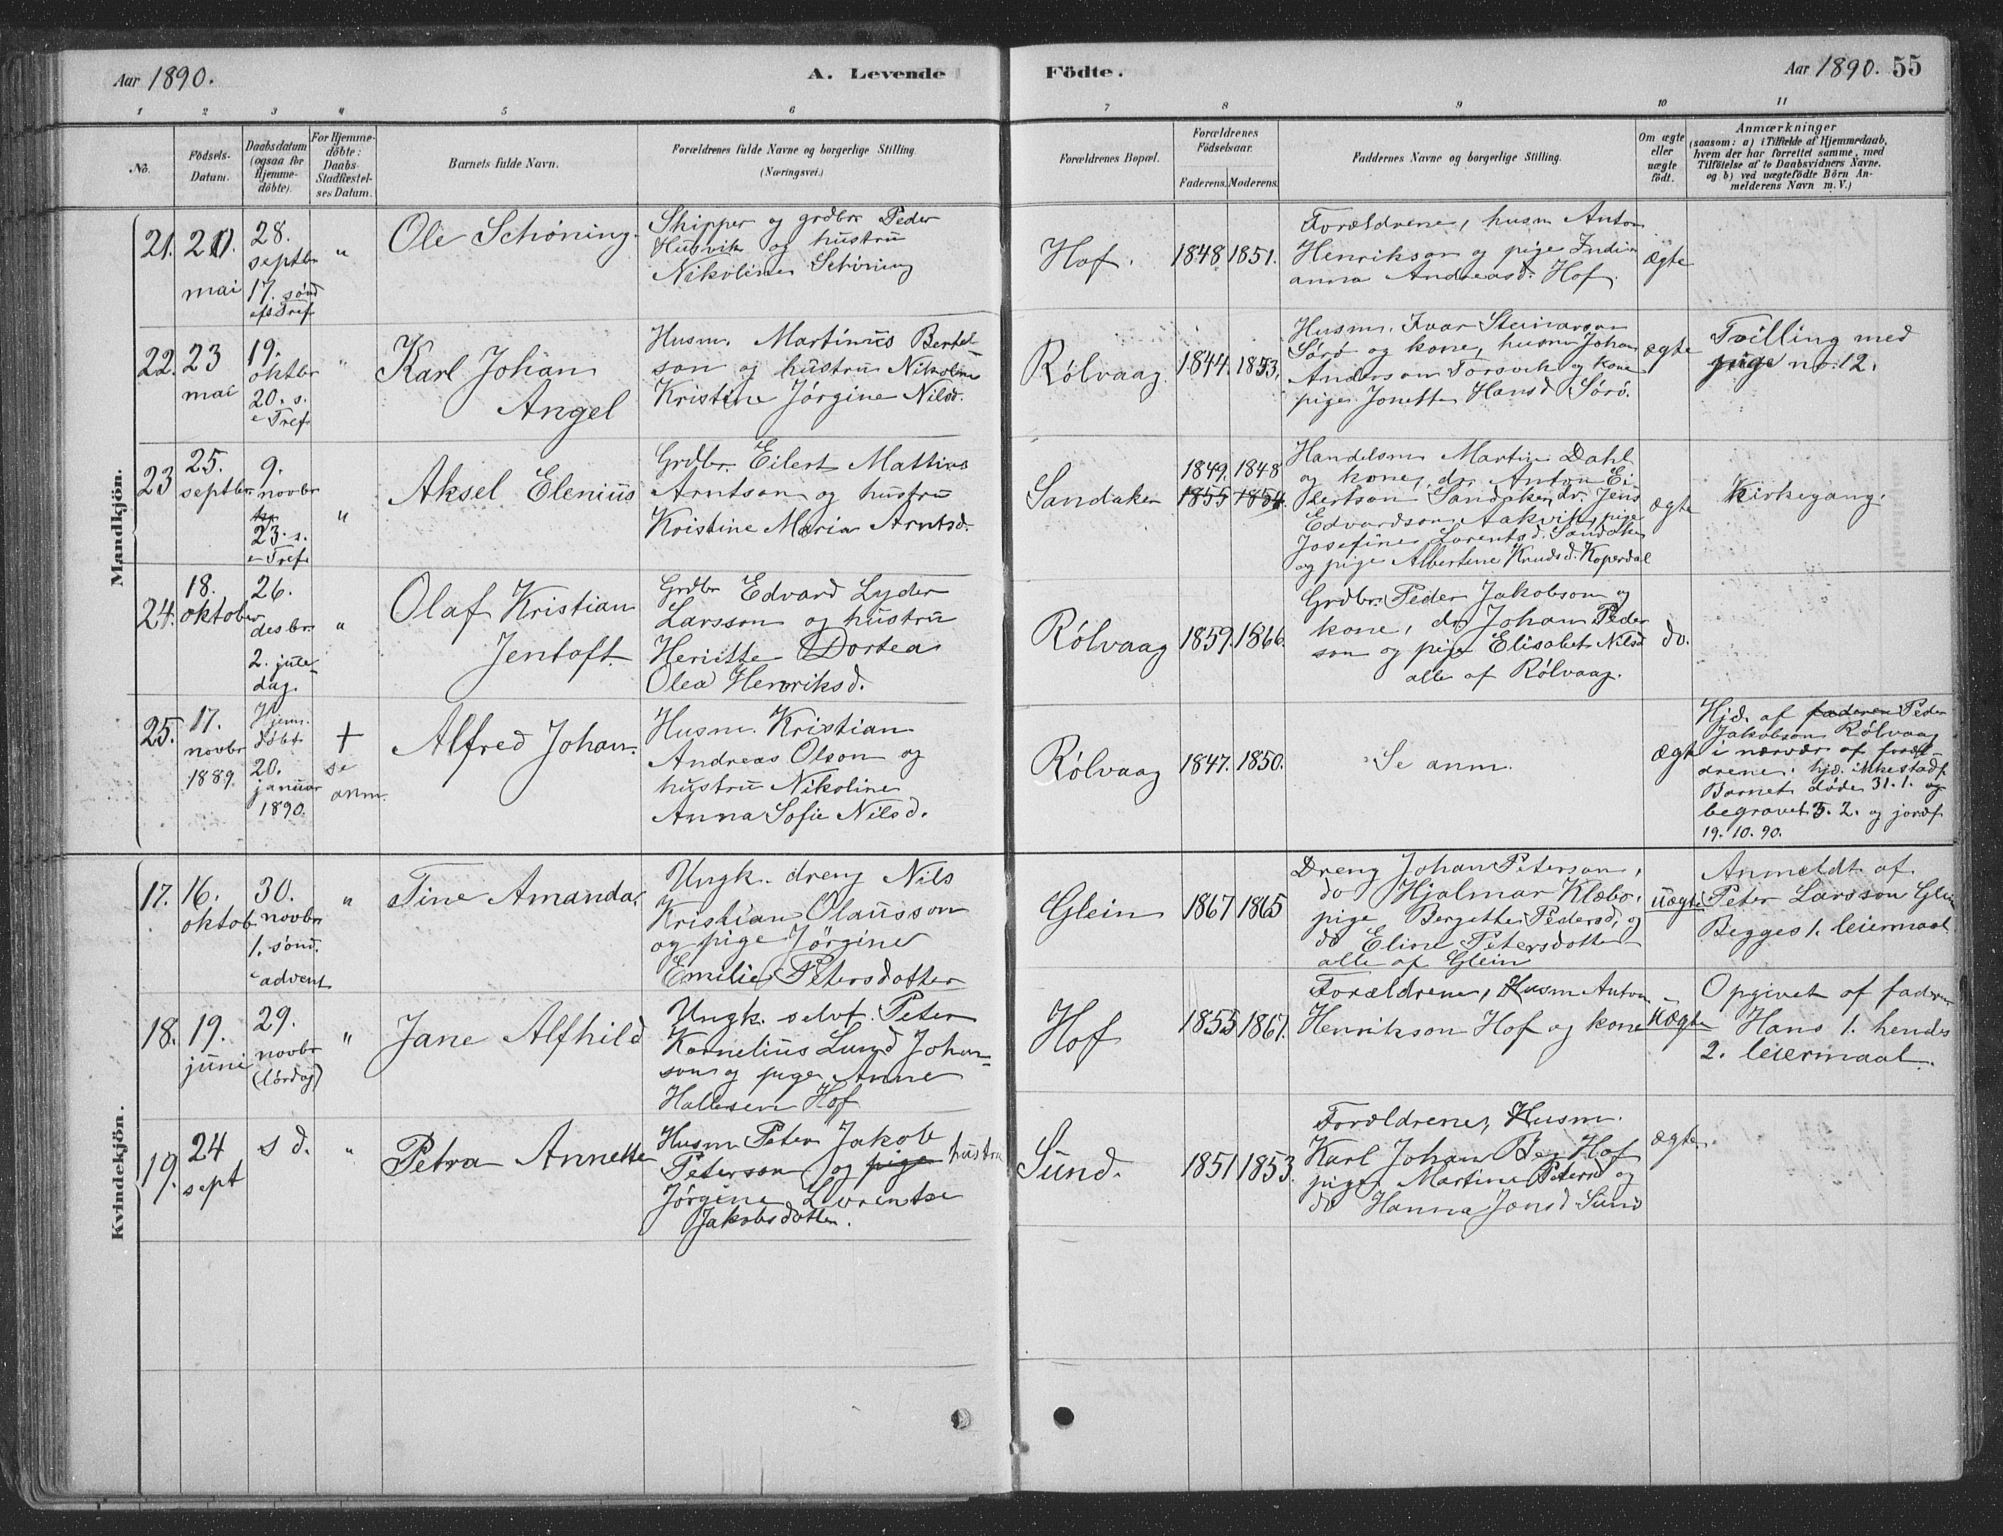 Aar 1890. A. Levende Födte. Aar 1890. 55
1 2 3 4 5 6 7 8 9 10 11
No.
Födsels-
Datum.
Daabsdatum
(ogsaa for
Hjemme-
döbte).
For Hjemme-
döbte:
Daabs-
Stadfæstel-
ses Datum.
Barnets fulde Navn.
Forældrenes fulde Navne og borgerlige Stilling.
(Næringsvei.)
Forældrenes Bopæl.
Forældrenes
Födselsaar.
Faderens. Moderens.
Faddernes Navne og borgerlige Stilling.
Om ægte
eller
uægte
födt.
Anmærkninger
(saasom: a) i Tilfælde af Hjemmedaab,
hvem der har forrettet samme, med
Tilföielse af to Daabsvidners Navne,
og b) ved uægtefödte Börn An-
melderens Navn m. V.)
Mandkjön.
21.
20.
mai
28.
septbr
17. sønd
eft. Tref
"
Ole Schöning.
Skipper og grdbr Peder
Husvik og hustru
Nikoline Schöning
Hof.
1848 1851.
Forældrene, husm Anton
Henrikson og pige Indi
anna Andreasd. Hof.
ægte
22.
23
mai
19.
oktbr
20. s.
e Tref
"
Karl Johan
Angel
Husm. Martinus Bertel
son og hustru Nikoline
Kristine Jørgine Nilsd.
Rølvaag
1844. 1853.
Husm. Ivar Steinarson
Sørø og kone, husm Johan
Anderson Torsvik og kone
pige Jonette Hansd Sørø.
ægte
Tvilling med
pige no. 12.
23
25.
septbr
9.
novbr
23. s.
e Tref
"
Aksel Elenius
Grdbr. Eilert Mattias
Arntson og hustru
Kristine Maria Arntsd.
Sandaker
1849. 1848
1855 1854.
Handelsm Martin Dahl
og kone, dr Anton Ei
lertson Sandaker, dr. Jens
Edvardson Aakvik, pige
Josefine Lorentsd. Sandaker
og pige Albertine Knudsd. Koperdal
ægte
Kirkegang.
24.
18.
oktober
26.
desbr.
2. jule-
dag.
"
Olaf Kristian
Jentoft.
Grdbr Edvard Lyder
Larsson og hustru
Henitte Dortea
Olea Henriksd.
Rølvaag
1859. 1866.
Grdbr. Peder Jakobson og
kone, dr Johan Peder
son og pige Elisabet Nilsd
alle af Rølvaag.
do.
25.
17.
novbr
1889.
Hjem.
døbt
20.
januar
1890.
+
se
anm.
Alfred Johan.
Husm. Kristian
Andreas Olson og
hustru Nikoline
Anna Sofie Nilsd.
Rølvaag
1847. 1850.
Se anm.
ægte
Hjd. af faderen Peder
Jakobson Rølvaag
i nærvær af foræl-
drene. hjd. ikke stadf.
Barnet døde 31.1. og
begravet 5. 2. og jordf
19. 10. 90.
Kvindekjön.
17.
16.
oktob
30.
novbr
1. sønd.
advent
"
Tine Amanda.
Ungk. dreng Nils
Kristian Olausson
og pige Jørgine
Emilie Petersdotter
Glein
1867 1865
Dreng Johan Peterson,
do Hjalmar Klæbo,
pige Bergette Pedersd. og
do Eline Petersdotter
alle af Glein
uægte
Anmeldt af
Peter Larsson Glein
Begges 1. leiermaal
18.
19.
juni
29.
novbr
(lørdag)
"
Jane Alfhild
Ungk. selvf. Peter
Kornelius Lund Johan-
son og pige Anne
Hallesen Hof
Hof
1855 1867.
Forældrene, Husm Anton
Henrikson Hof og kone
uægte
Opgivet af faderen
Hans 1. hendes
2. leiermaal.
19.
24
sept
s d.
"
Petra Annette
Husm Peter Jakob
Peterson og pige hustru
Jørgine Lorentse
Jakobsdotter.
Sund.
1851 1853.
Forældrene, Husm.
Karl Johan Berg Hof
pige Martine Petersd og
do Hanna Jonsd Sund
ægte.